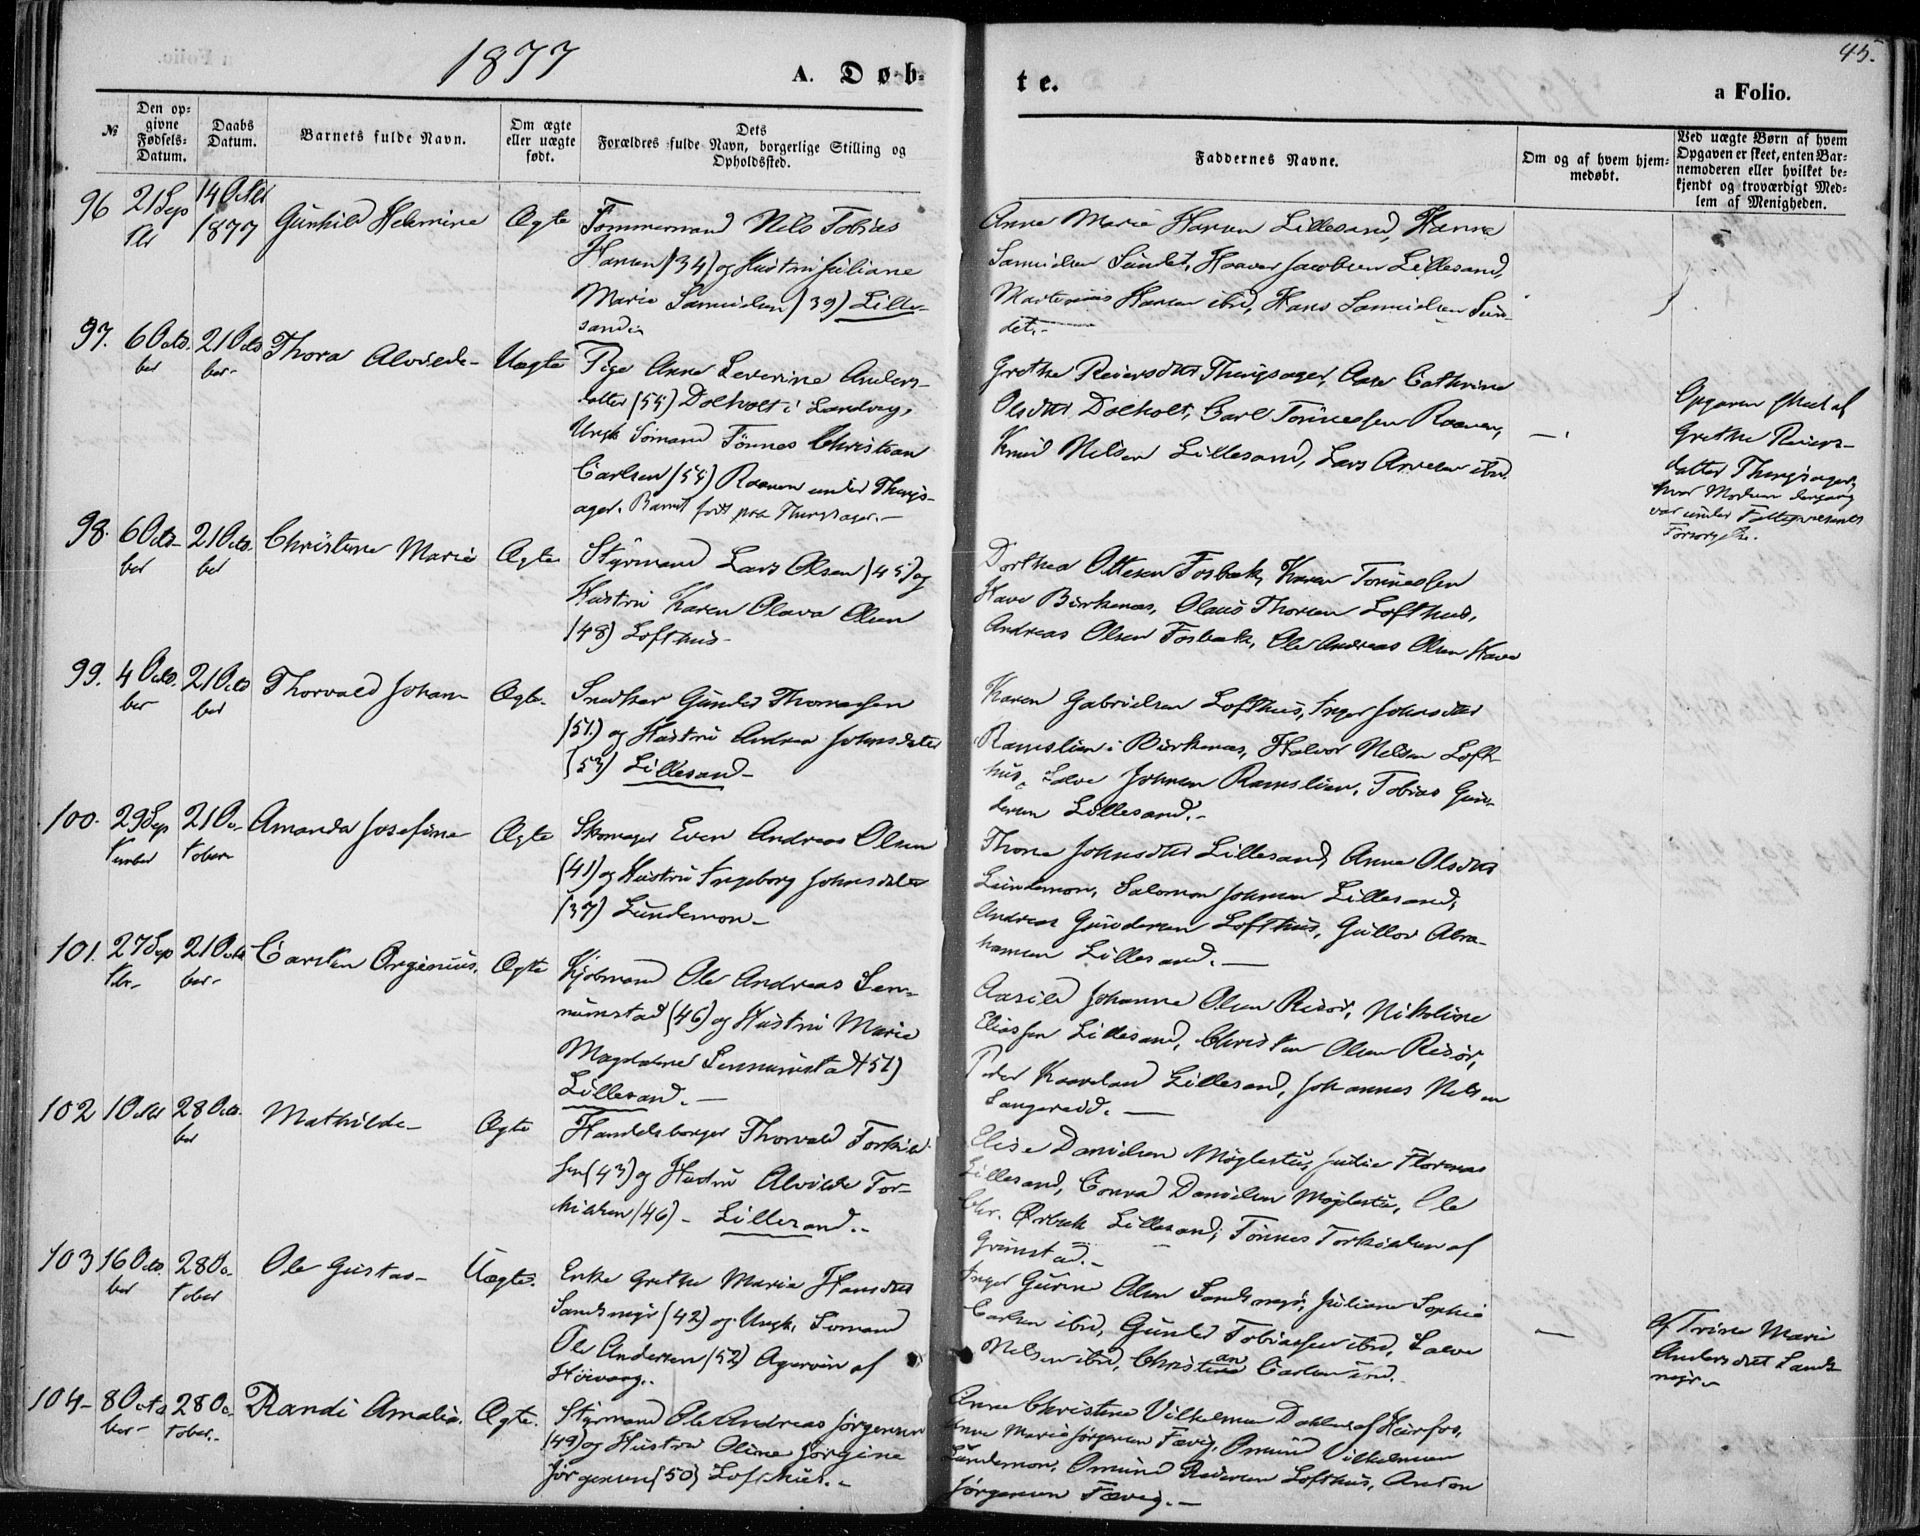 1877
A. Døb-
te.
45.
a Folio.
№
Den op-
givne
Fødsels-
Datum.
Daabs
Datum.
Barnets fulde Navn.
Om ægte
eller uægte
født.
Dets
Forældres fulde Navn, borgerlige Stilling og
Opholdssted.
Faddernes Navne.
Om og af hvem hjem-
medøbt.
Ved uægte Børn af hvem
Opgaven er skeet, enten Bar-
nemoderen eller hvilket be-
kjendt og troværdigt Med-
lem af Menigheden.
96 21 Sep 14 Octbr
1877 Gunhild Helmine Ægte Tømmermand Nils Tobias
Hansen (34) og Hustru Juliane
Marie Samuelsen (39) Lille-
sand.
Anne Marie Hansen Lillesand, Hanne
Samuelsen Sundet, Haaver Jacobsen Lillesand,
Hansen ibid, Hans Samuelsen Sun-
det.
97. 6 Octo- 21 Octo
ber ber Thora Alvilde Uægte Pige Anne Severine Anders-
datter (55) Dolholt i Landvig,
Ungk Sømand Tønnes Christian
Carlsen (55) Raanen under Things-
ager. Barnet født paa Thingsager.
Grethe Reiersdtr Thingsager, Aase Cathrine
Olsdtr Dolholt, Carl Tønnessen Raanen,
Knud Nilsen Lillesand, Lars ibd.
Opgaven skeet af
Grethe Reiers-
datter Thingsager,
hvor Moderen dengang
var under Fattigvæsenets
Forsorg
98. 6 Octo- 21 Octo.
ber ber Christine Marie Ægte Styrmand Lars Olsen (45) og
Hustru Karen Olava Olsen
(48) Lofthus
Dorthea Ottesen Fosbæk, Karen Tønnessen
Have Birkenæs, Olaus Thorsen Lofthus,
Andreas Olsen Fosbæk, Ole Andreas Olsen Have
99. 4 Octo. 21 Octo
ber ber Thorvald Johan Ægte. Snedker Gunder Thomassen
(51) og Hustru Andrea Johnsdatter
(53) Lillesand
Karen Gabrielsen Lofthus, Inger Johnsdtr
Ramslien i Birkenæs, Halvor Nilsen Loft-
hus, Salve Johnsen Ramslien, Tobias Gun-
dersen Lillesand.
100. 29 Sep 21 Oc-
tember tober Amanda Josefine Ægte Skomager Even Andreas Olsen
(41) og Hustru Ingeborg Johnsdatter
(37) Lundemon
Thone Johnsdtr Lillesand, Anne Olsdtr
Lundemon, Salomon Johnsen Lillesand,
Andreas Gundersen Lofthus, Gullov Abra-
hamsen Lillesand.
101. 27 Sep 21 Octo
tbr. ber Carsten Ørgenius. Ægte Kjøbmand Ole Andreas Sen-
numstad (46) og Hustru Marie
Magdalene Sennumstad (51)
Lillesand.
Aasild Johanne Olsen Risør, Nikoline
Eliassen Lillesand, Christen Olsen Risør,
Peder Lillesand, Johannes Nilsen
Sangereid.
102 1 Octbr 28 Octo.
ber Mathilde Ægte Handelsborger Thorvald Torkild-
sen (43) og Hustru Alvilde Tor-
kildsen (46) - Lillesand.
Elise Danielsen Møglestu, Julie
Lillesand, Conrad Danielsen Møglestu, Ole
Chr. Ørbæk Lillesand, Tønnes Torkildsen af
Grimstad.
103 16 Octo. 28 Oc-
ber tober Ole Gustav Uægte. Enke Grethe Maria Hansdtr
Sandsmyr (42) og Ungk. Sømand
Ole Andersen (52) Agerøen af
Høivaag.
Inger Gurine Olsen Sandsmyr, Juliane Sophie
Carlsen ibid, Gunder Tobiassen ibid, Salve
Nilsen ibid, Christian Carlsen ibid.
af Trine Marie
Andersdtr Sands-
myr
104 8 Octo 28 Oc-
ber tober. Randi Amalia. Ægte. Styrmand Ole Andreas Jørgensen
(49) og Hustru Oline Jørgine
Jørgensen (50) Lofthus.
Anne Christine Vilhelmsen Dahlen af
Anne Marie Jørgensen Fævig, Omund Vilhelmsen
Lundemon, Omund Pedersen Lofthus, Anton
Jørgensen Fævig.